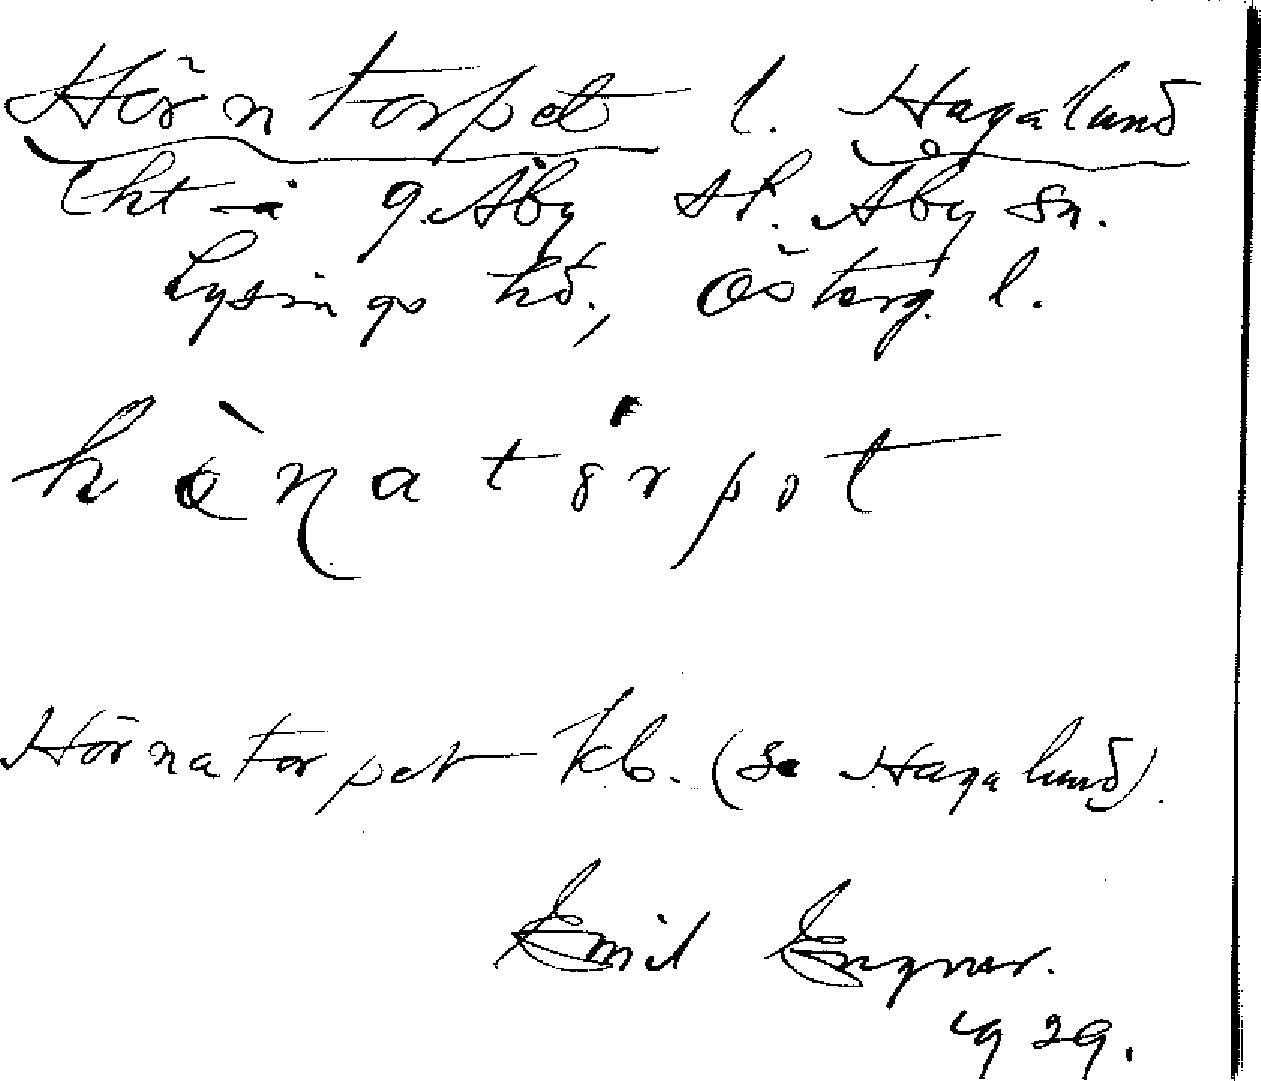 Hörntorpet l. Hagalund
lht å g. Åby sk. Åby sn.
Lysings hd., Österg. l.
hö̀ṇatɵrpət
Hörnatorpet kb. (se Hagalund).
Emil Engner.
1929.